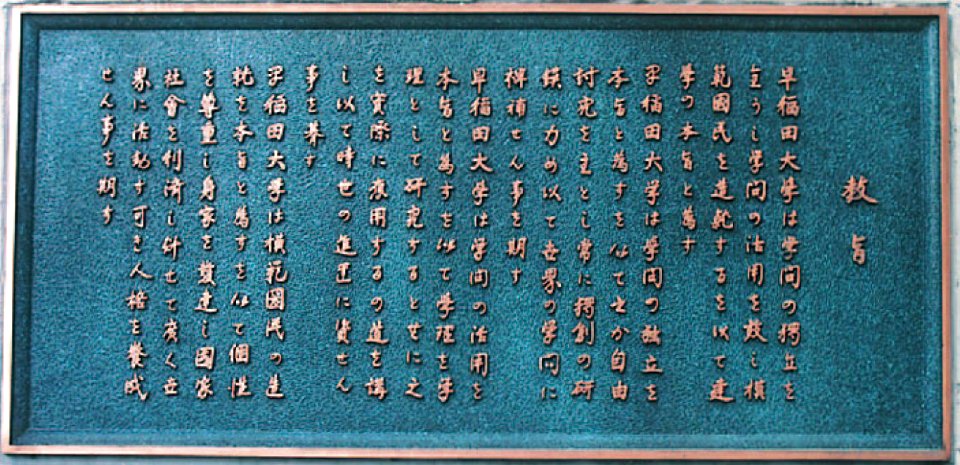 教旨
早稲田大學は学問の獨立を
全うし学問の活用を效し模
範國民を造就するを以て建
學の本旨と為す
早稲田大学は学問の独立を
本旨と為すを以て之か自由
討究を主とし常に獨創の研
鑽に力め以て世界の学問に
裨補せん事を期す
早稲田大學は学問の活用を
本旨と為すを以て学理を学
理として研究すると共に之
を實際に應用するの道を講
し以て時世の進運に資せん
事を期す
早稲田大学は模範國民の造
就を本旨と為すを以て個性
を尊重し身家を發達し國家
社會を利済し併せて廣く世
界に活動す可き人格を養成
せん事を期す